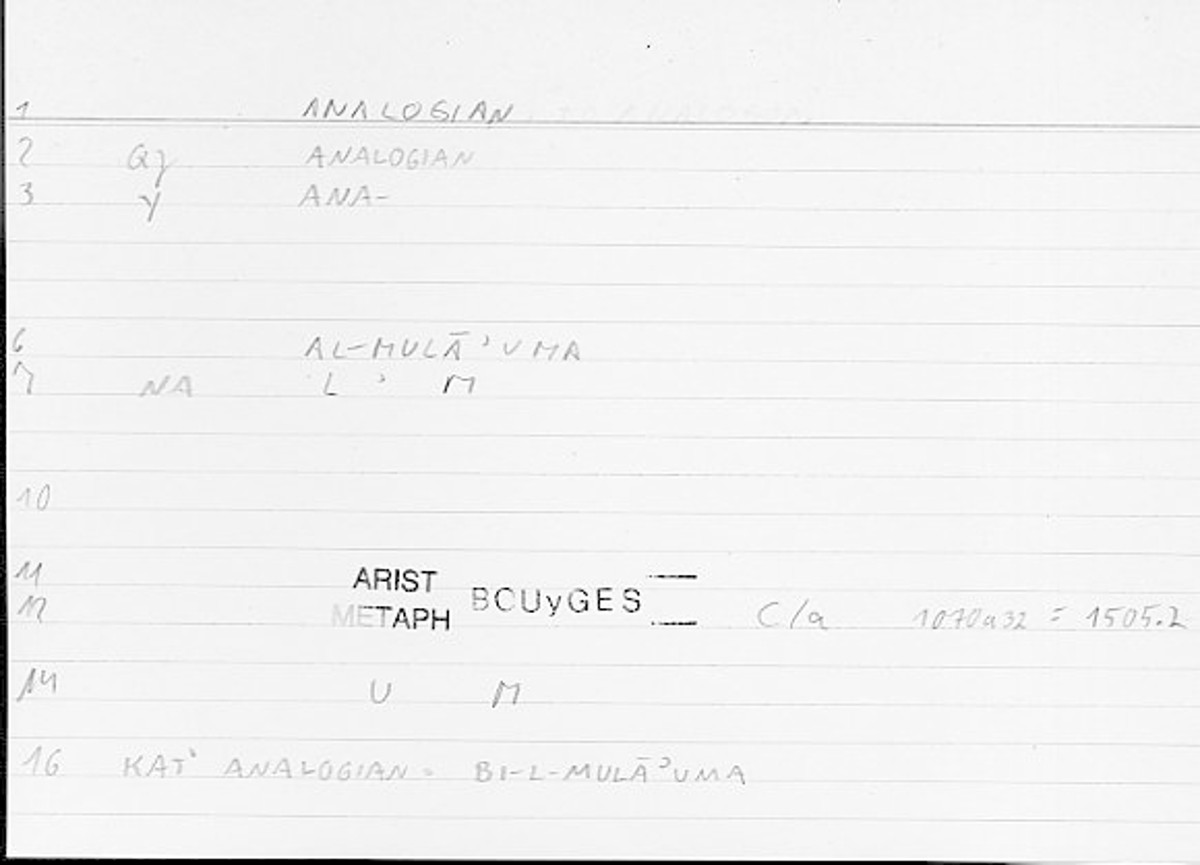 1 ANALOGIAN
2 Qz ANALOGIAN
3 γ ANA-
6 AL-MULĀʾUMA
7 NA L ʾ M
10
11 ARIST
12 METAPH BOUyGES C/a 1070a32 = 1505.2
14 U M
16 KAT' ANALOGIAN = BI-L-MULĀʾUMA